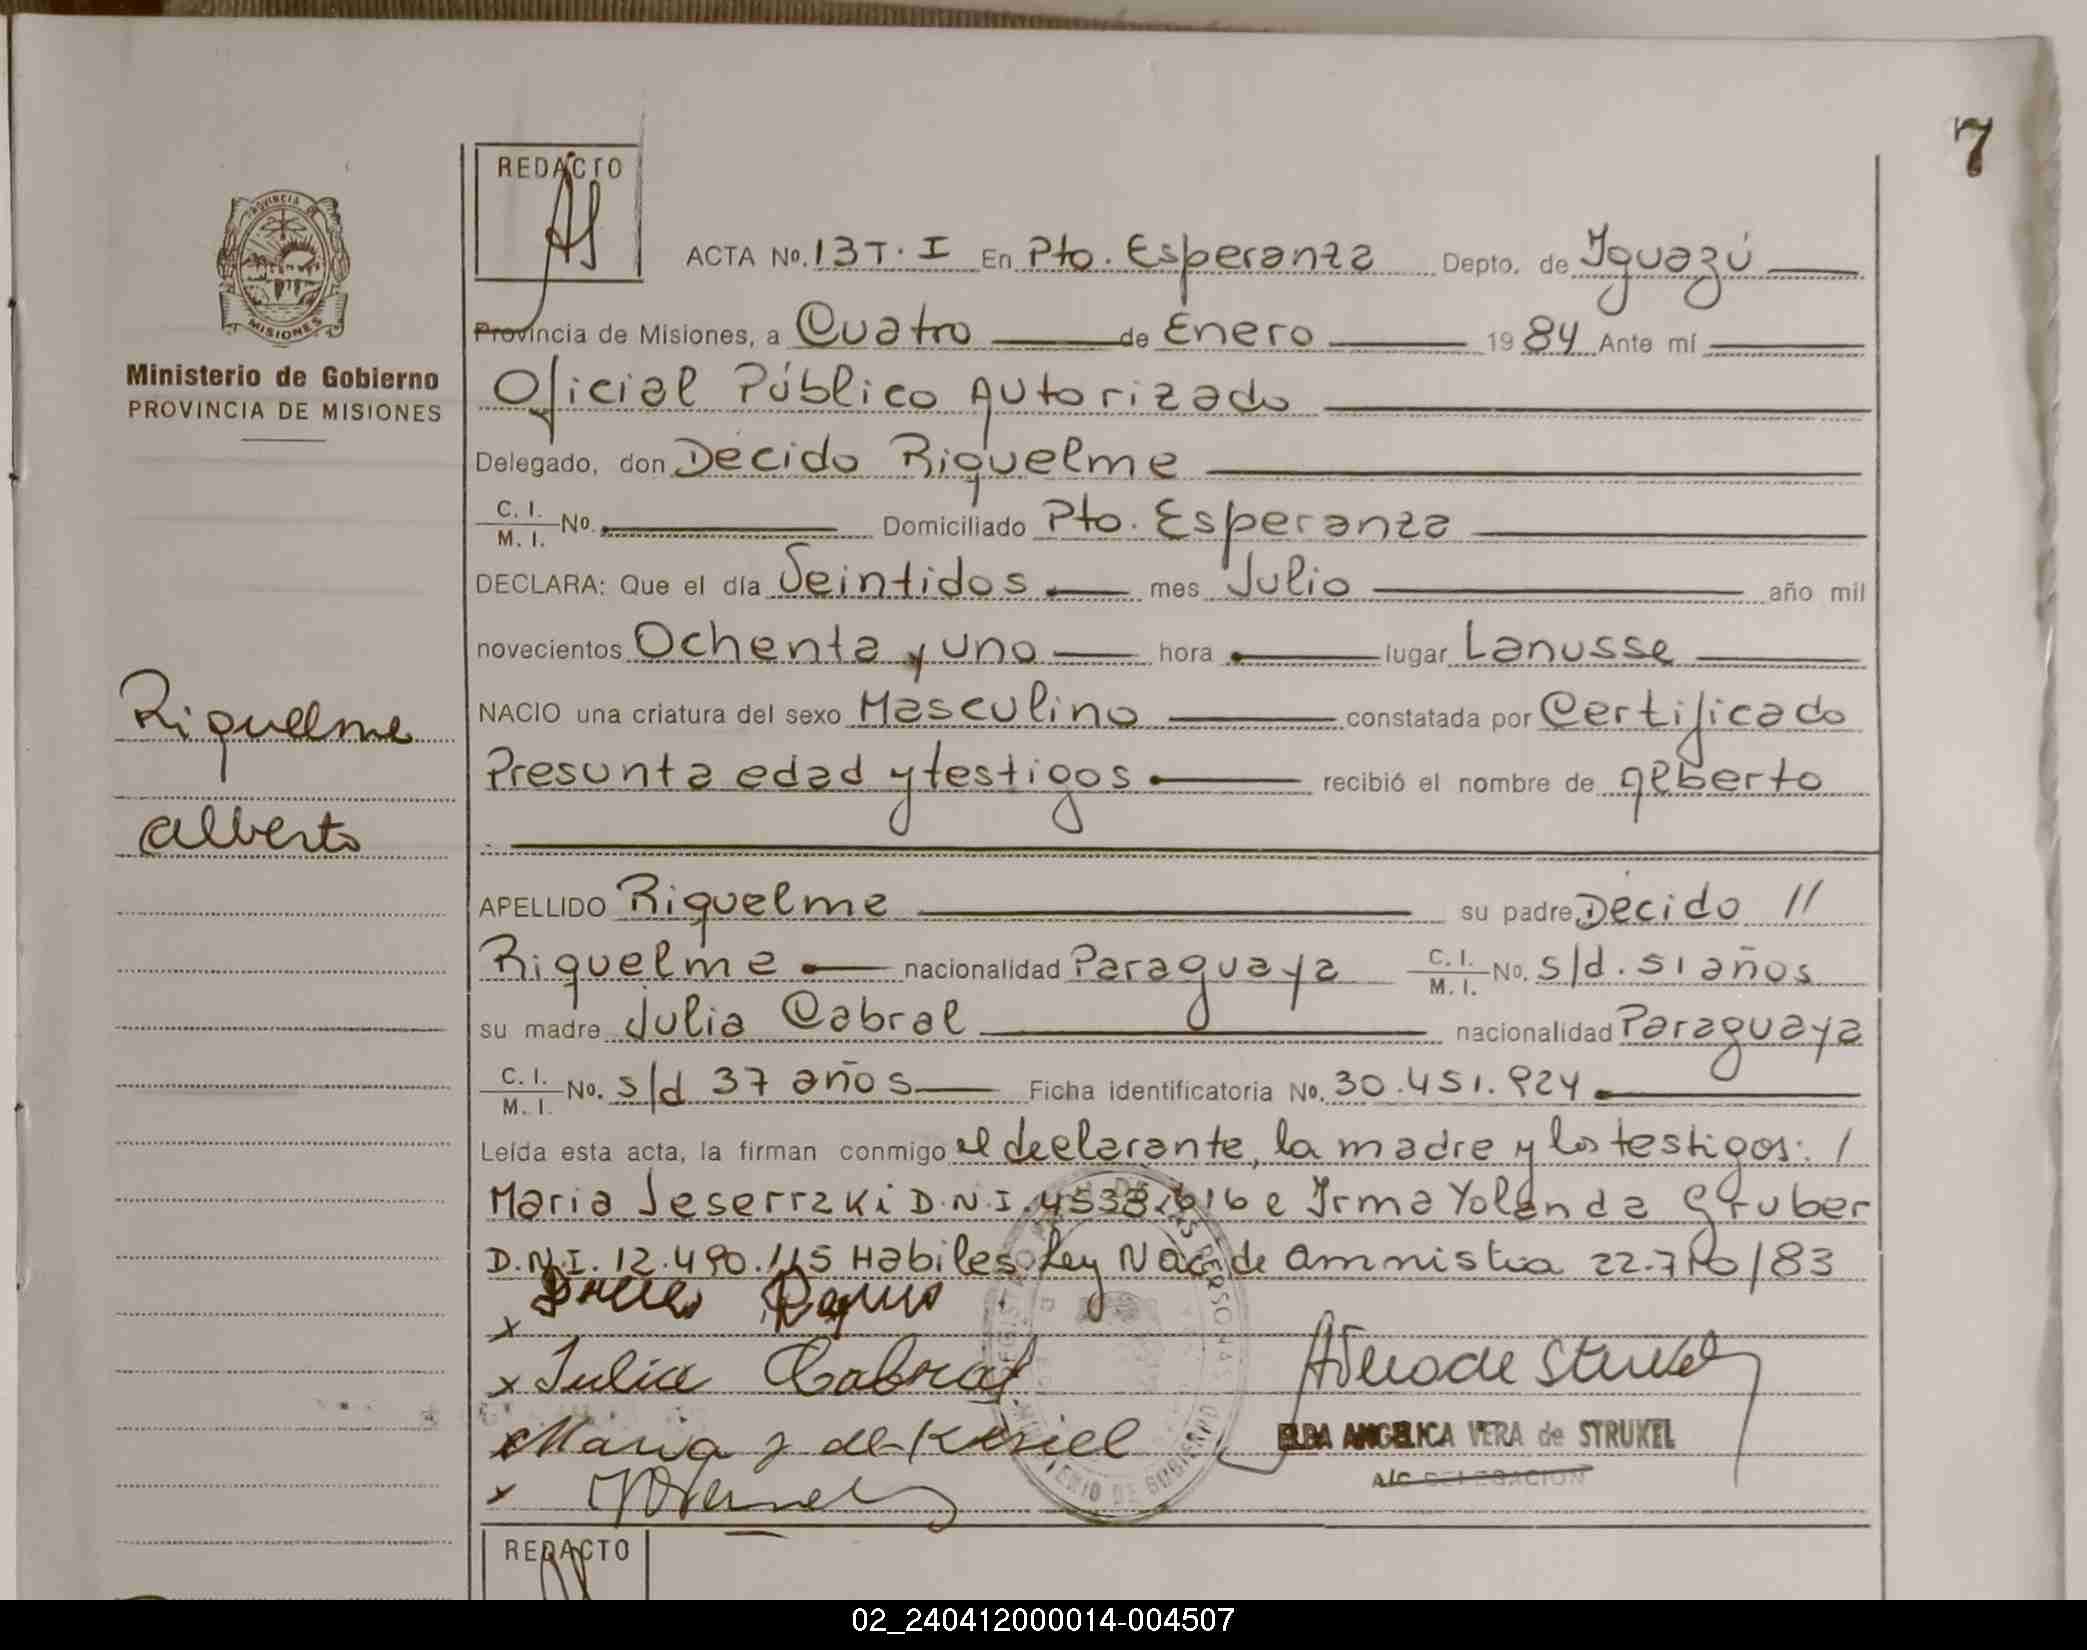 7
REDACTO
ACTA No. 13 T. I En Pto. Esperanza Depto. de Iguazú
Provincia de Misiones, a Cuatro de Enero 1984 Ante mí
Oficial Público Autorizado
Delegado, don Décido Riquelme
C. I.
M. I. No. Domiciliado Pto. Esperanza
DECLARA: Que el día Veintidos mes Julio año mil
novecientos Ochenta y uno hora lugar Lanusse
NACIO una criatura del sexo Masculino constatada por Certificado
Presunta edad y testigos recibió el nombre de Alberto
APELLIDO Riquelme su padre Décido //
Riquelme nacionalidad Paraguaya C. I. M. I. No. s/d. 51 años
su madre Julia Cabral nacionalidad Paraguaya
C. I.
M. I. No. s/d 37 años Ficha identificatoria No. 30.451.924
Leída esta acta, la firman conmigo el declarante, la madre y los testigos: /
Maria D.N.I. e Irma Yolanda Gruber
D.N.I. 12.490.115 Habiles Ley Nac. de Amnistia /83
x
x Julia Cabral
x Maria J de
x
ELBA ANGELICA VERA de STRUKEL
A/C DELEGACION
REDACTO
PROVINCIA DE
MISIONES
Ministerio de Gobierno
PROVINCIA DE MISIONES
Riquelme
Alberto
02_240412000014-004507